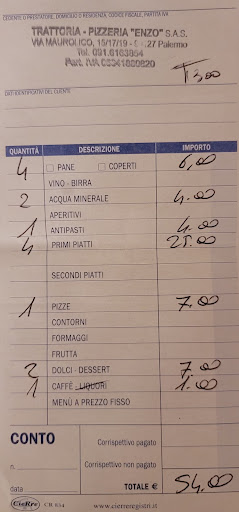 CEDENTE O PRESTATORE, DOMICILIO O RESIDENZA, CODICE FISCALE, PARTITA IVA
TRATTORIA - PIZZERIA "ENZO" S.A.S.
VIA MAUROLICO, 15/17/19 - 27 Palermo
Tel. 091.6163854
Part. IVA 05341890820
DATI IDENTIFICATIVI DEL CLIENTE
QUANTITÀ DESCRIZIONE IMPORTO
4 PANE COPERTI 6,00
VINO - BIRRA
2 ACQUA MINERALE 4.00
APERITIVI
1 ANTIPASTI 4.00
4 PRIMI PIATTI 25.00
SECONDI PIATTI
1 PIZZE 7.00
CONTORNI
FORMAGGI
FRUTTA
2 DOLCI - DESSERT 7.00
1 CAFFÈ - LIQUORI 1.00
MENÙ A PREZZO FISSO
CONTO Corrispettivo pagato
n. Corrispettivo non pagato
data TOTALE € 54.00
CieRre CR 814 www.cierreregistri.it